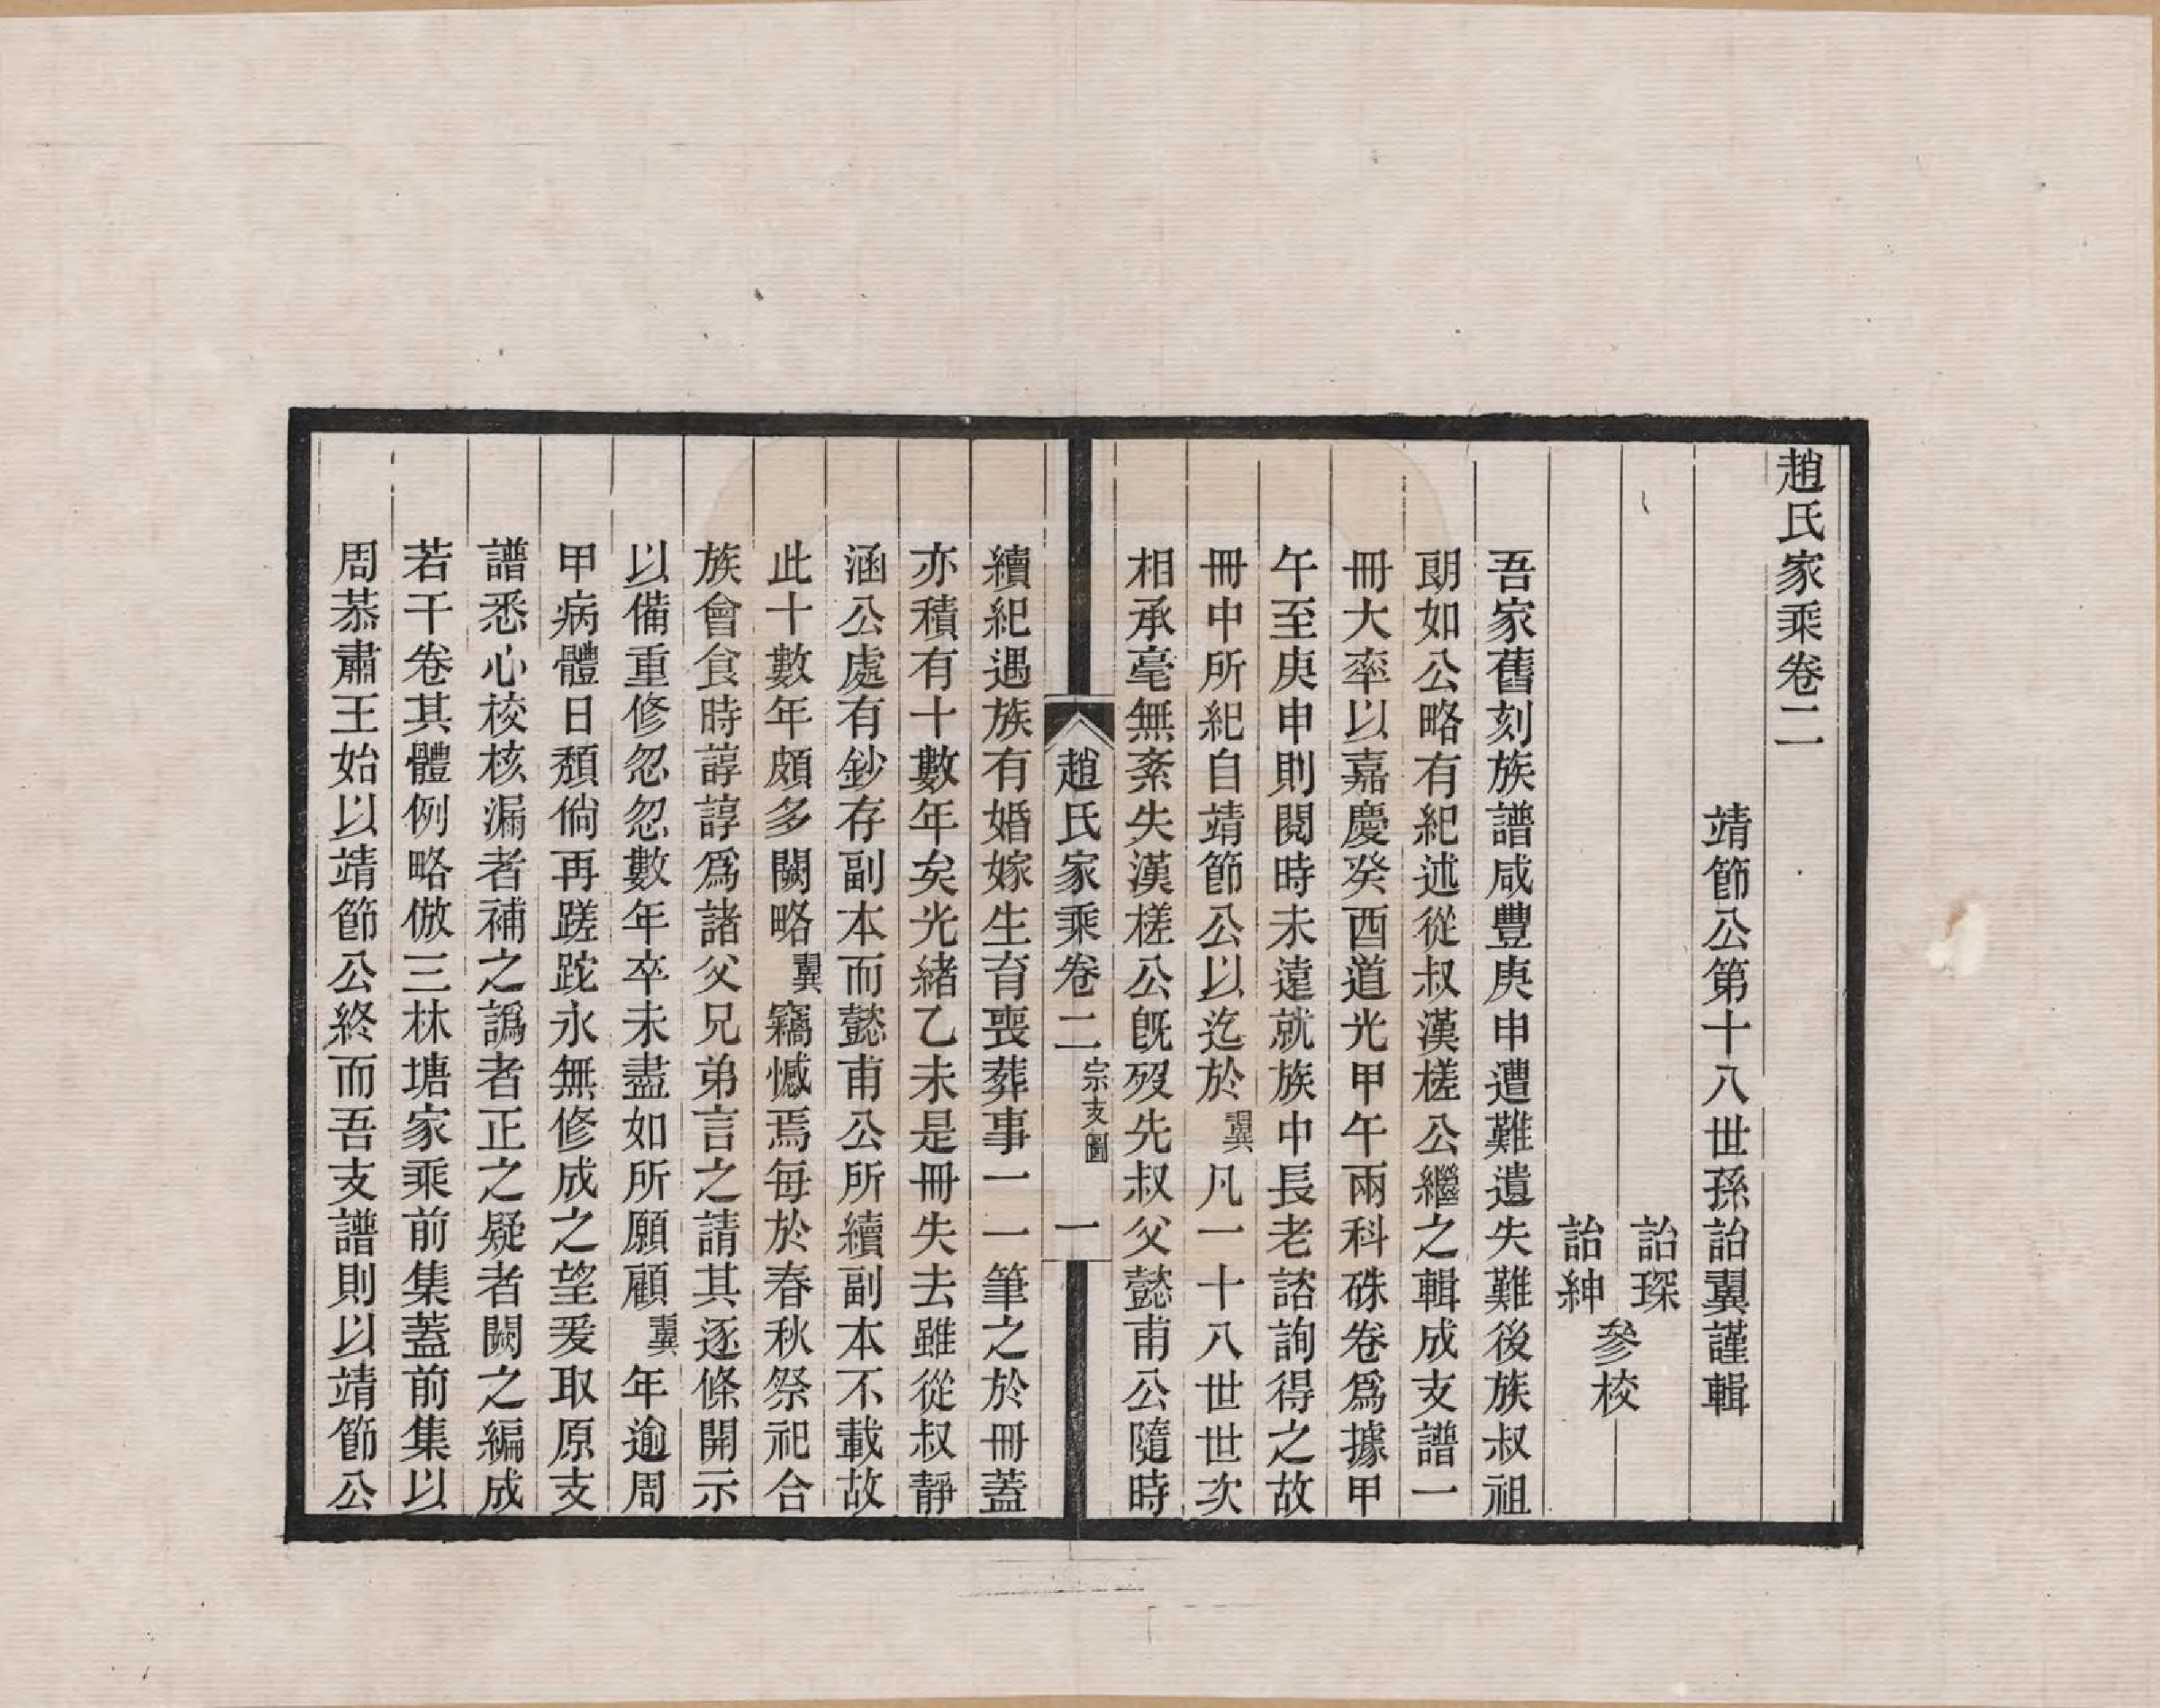 趙氏家乘卷二
靖節公第十八世孫詒翼謹輯
詒琛
詒紳
參校
吾家舊刻族譜咸豐庚申遭難遺失難後族叔祖
朗如公略有紀述從叔漢槎公繼之輯成支譜一
冊大率以嘉慶癸酉道光甲午兩科硃卷爲據甲
午至庚申則閱時未遠就族中長老諮詢得之故
冊中所紀自靖節公以迄於翼凡一十八世世次
相承毫無紊失漢槎公旣歿先叔父懿甫公隨時
趙氏家乘卷二 宗支圖 一
續紀遇族有婚嫁生育喪葬事一一筆之於冊蓋
亦積有十數年矣光緒乙未是冊失去雖從叔靜
涵公處有鈔存副本而懿甫公所續副本不載故
此十數年頗多闕略翼竊憾焉每於春秋祭祀合
族會食時諄諄爲諸父兄弟言之請其逐條開示
以備重修忽忽數年卒未盡如所願顧翼年逾周
甲病體日頹倘再蹉跎永無修成之望爰取原支
譜悉心校核漏者補之譌者正之疑者闕之編成
若干卷其體例略倣三林塘家乘前集蓋前集以
周恭肅王始以靖節公終而吾支譜則以靖節公